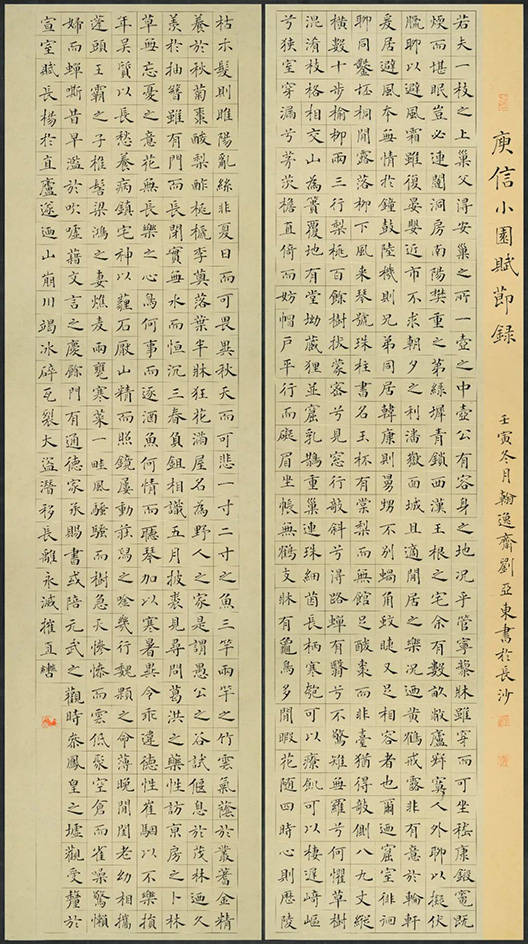 庾信小園賦節録
壬寅冬月翰逸齋劉亞東書於長沙
若夫一枝之上巢父得安巢之所一壺之中壺公有容身之地况乎管寧藜牀雖穿而可坐嵇康鍛竈既
煙而堪眠豈必連闥洞房南陽樊重之第綠墀青鎖西漢王根之宅余有數畝敝廬寂寞人外聊以擬伏
臘聊以避風霜雖復晏嬰近市不求朝夕之利潘嶽面城且適閒居之樂况迺黃鶴戒露非有意於輪軒
爰居避風本無情於鐘鼓陸機則兄弟同居韓康則舅甥不別蝸角蚊睫又足相容者也爾迺窟室徘徊
聊同鑿坯桐間露落柳下風來琴號珠柱書名玉杯有棠梨而無館足酸棗而非臺猶得敧側八九丈縱
橫數十步榆柳兩三行梨桃百餘樹撥蒙密兮見窗行敧斜兮得路蟬有翳兮不驚雉無羅兮何懼草樹
混淆枝格相交山為簣覆地有堂坳藏狸並窟乳鵲重巢連珠細菌長柄寒匏可以療飢可以棲遲崎嶇
兮狹室穿漏兮茅茨檐直倚而妨帽戶平行而礙眉坐帳無鶴支牀有龜鳥多閒暇花隨四時心則歷陵
枯木髮則睢陽亂絲非夏日而可畏異秋天而可悲一寸二寸之魚三竿兩竿之竹雲氣蔭於叢蓍金精
養於秋菊棗酸梨酢桃榹李薁落葉半牀狂花滿屋名為野人之家是謂愚公之谷試偃息於茂林迺久
羨於抽簪雖有門而長閉實無水而恒沉三春負鉏相識五月披裘見尋問葛洪之藥性訪京房之卜林
草無忘憂之意花無長樂之心鳥何事而逐酒魚何情而聽琴加以寒暑異令乖違德性崔駰以不樂損
年吳質以長愁養病鎮宅神以薶石厭山精而照鏡屢動莊舄之吟幾行魏顆之命薄晚閒閨老幼相攜
蓬頭王霸之子椎髻梁鴻之妻燋麥兩甕寒菜一畦風騷騷而樹急天慘慘而雲低聚空倉而雀噪驚懶
婦而蟬嘶昔早濫於吹噓藉文言之慶餘門有通德家承賜書或陪元武之觀時參鳳皇之墟觀受釐於
宣室賦長楊於直廬遂迺山崩川竭冰碎瓦裂大盜潛移長離永滅摧直轡